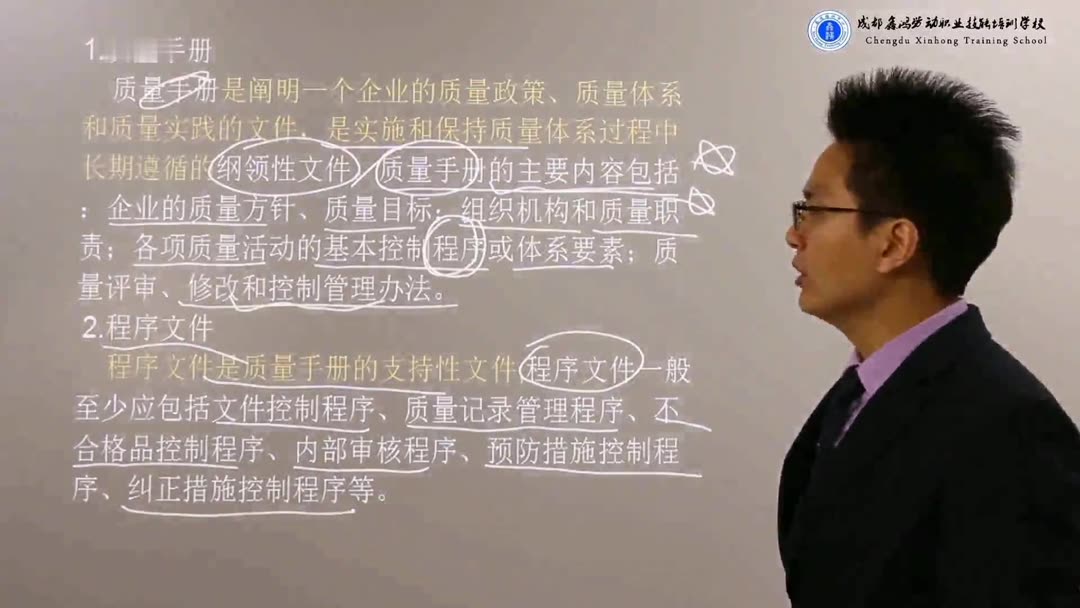 成都鑫鸿劳动职业技能培训学校
Chengdu Xinhong Training School
1.手册
质量手册是阐明一个企业的质量政策、质量体系
和质量实践的文件，是实施和保持质量体系过程中
长期遵循的纲领性文件，质量手册的主要内容包括
：企业的质量方针、质量目标；组织机构和质量职
责；各项质量活动的基本控制程序或体系要素；质
量评审、修改和控制管理办法。
2.程序文件
程序文件是质量手册的支持性文件,程序文件一般
至少应包括文件控制程序、质量记录管理程序、不
合格品控制程序、内部审核程序、预防措施控制程
序、纠正措施控制程序等。